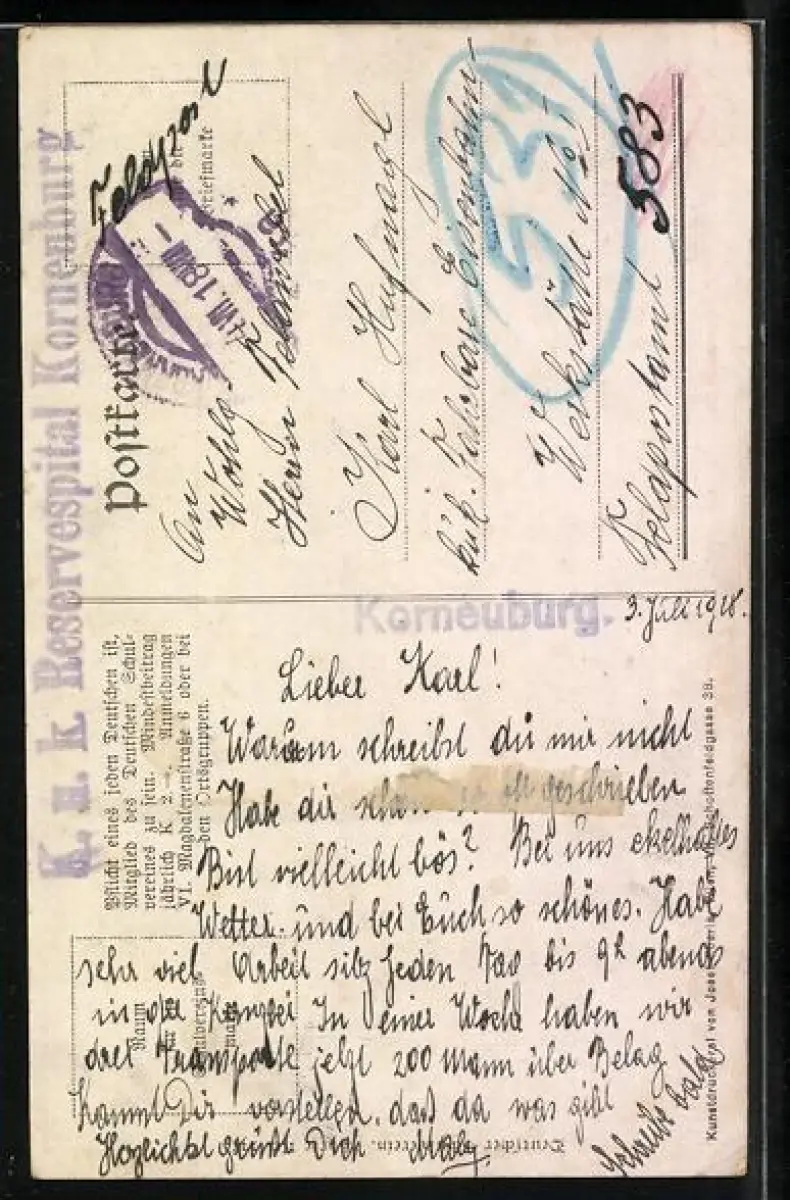 K. u. k. Reservespital Korneuburg
Feldpost
Postkarte.
Briefmarke
VII. 18
An
Wohlg.
Herrn
Karl Hufnagl
k.u.k. Fahrbare Eisenbahn-
Werkstätte No 1
Feldpostamt 583
531
Korneuburg.
3. Juli 1918.
Pflicht eines jeden Deutschen ist,
Mitglied des Deutschen Schul-
vereines zu sein. Mindestbeitrag
jährlich K 2.—. Anmeldungen
VI. Magdalenenstraße 6 oder bei
den Ortsgruppen.
Lieber Karl!
Warum schreibst du mir nicht
Habe dir schon so oft geschrieben
Bist vielleicht bös? Bei uns ekelhaftes
Wetter. und bei Euch so schönes. Habe
sehr viel Arbeit sitz jeden Tag bis 9h abends
in der Kanzlei In einer Woche haben wir
drei Transporte jetzt 200 Mann über Belag
Kannst Dir vorstellen, daß da was gibt
Herzlichst grüßt Dich
bald
Raum
für
marke
Deutscher Schulverein.
Kunstdruckerei von Josef Schottenfeldgasse 38.